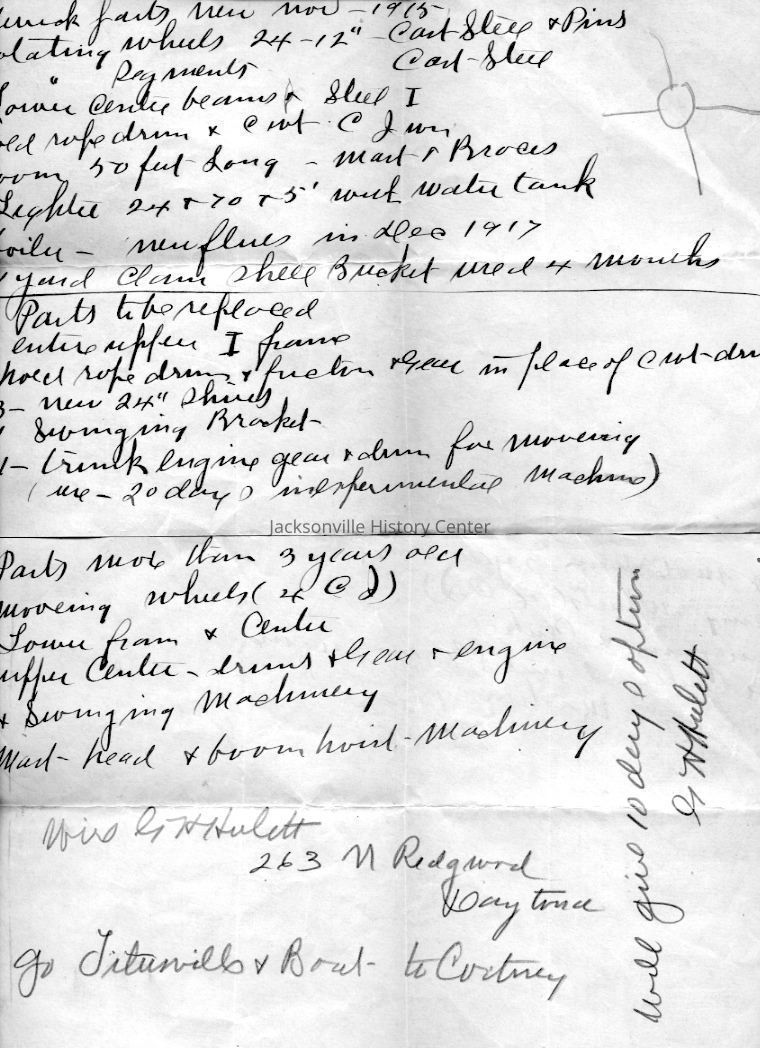 parts new nov - 1915
wheels 24-12" - Cast Steel & Pins
" Segments Cast-Steel
Lower Centre beams & Steel I
rope drum & C wt. C Iron
50 feet Long - Mast & Braces
Lighter 24 x 70 x 5' with water tank
new flues in Dec 1917
yard Clam Shell Bucket used 4 months
Parts to be replaced
entire upper I frame
rope drum & friction & Gear in place of C wt-
3- new 24" Shives
1 Swinging Bracket
1- trunk engine gear & drum for moveing
(use - 20 days in experimental Machine)
Jacksonville History Center
Parts more than 3 years old
moveing wheels (4 C I)
Lower fram & Centre
upper Centre - drums & Gear & engine
& Swinging Machinery
Mast-head & boom hoist-Machinery
Wire G H Hulett
263 N Redgwood
Daytona
Go Titusville & Boat - to Cortney
Will give 10 days option
G H Hulett